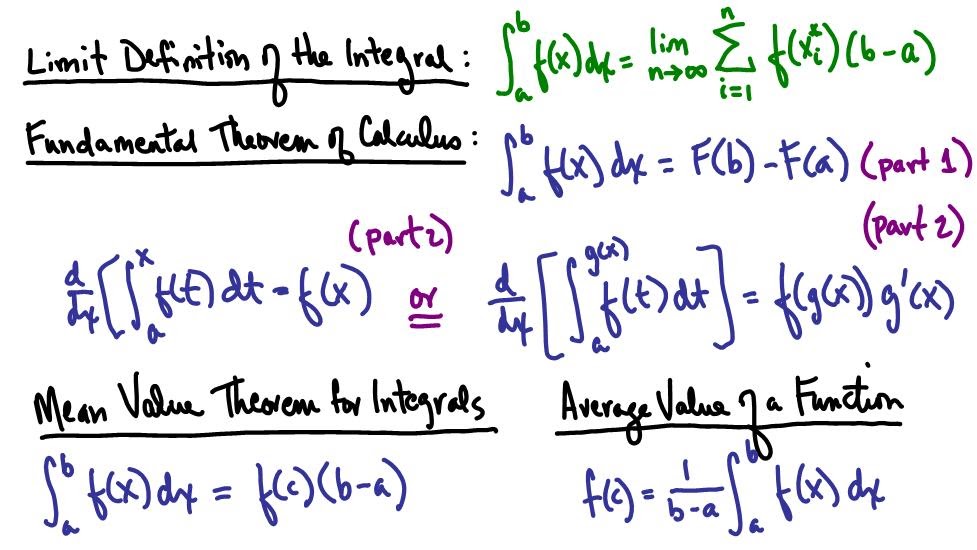 Limit Definition of the Integral: ∫_a^b f(x) dx = lim_{n→∞} ∑_{i=1}^n f(x_i^*)(b-a)
Fundamental Theorem of Calculus: ∫_a^b f(x) dx = F(b) - F(a) (part 1)
(part 2) (part 2)
d/dx [∫_a^x f(t) dt = f(x) or d/dx [∫_a^{g(x)} f(t) dt] = f(g(x)) g'(x)
Mean Value Theorem for Integrals Average Value of a Function
∫_a^b f(x) dx = f(c)(b-a) f(c) = 1/(b-a) ∫_a^b f(x) dx